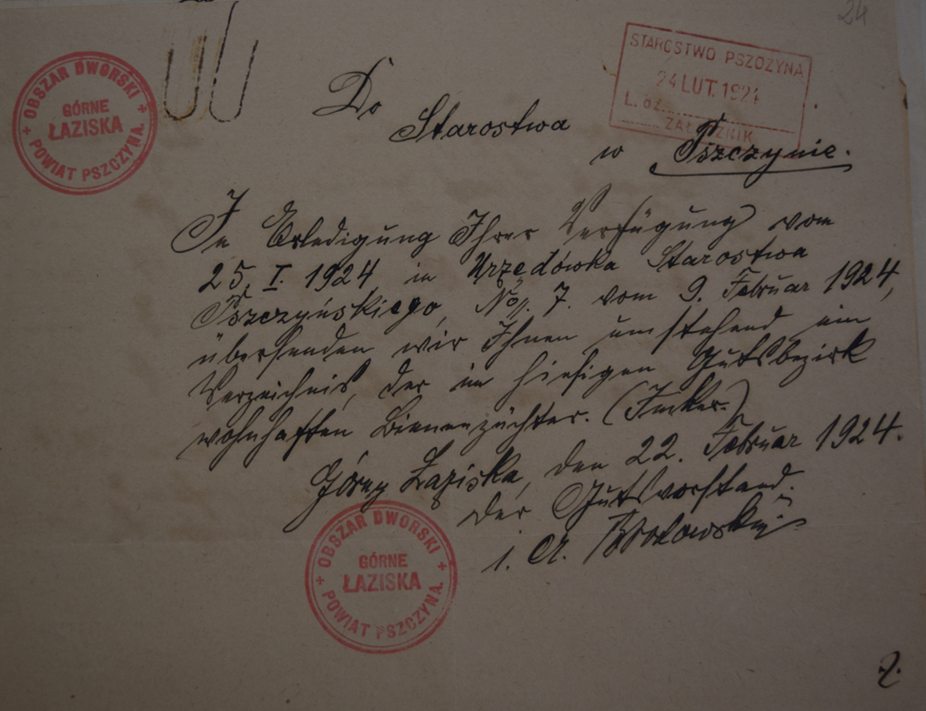 24
OBSZAR DWORSKI
GÓRNE
ŁAZISKA
POWIAT PSZCZYNA.
STAROSTWO PSZCZYNA
24 LUT. 1924
L. dz.
ZAŁĄCZNIK
Do
Starostwa
w Pszczynie.
In Erledigung Ihrer Verfügung vom
25. I. 1924 in Urzędówka Starostwa
Pszczyńskiego, No. 7. vom 9. Februar 1924,
übersenden wir Ihnen umstehend ein
Verzeichnis, der im hiesigen Gutsbezirk
wohnhaften Bienenzüchter. (Imker.)
Górny Łaziska, den 22. Februar 1924.
Der Gutsvorstand.
i. A.
OBSZAR DWORSKI
GÓRNE
ŁAZISKA
POWIAT PSZCZYNA.